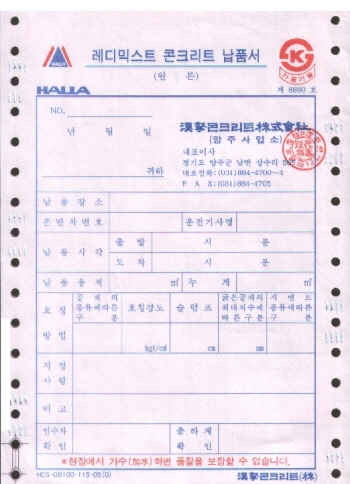 레디믹스트 콘크리트 납품서
(원 본)
HALLA
HALLA
제 8880 호
NO.
년 월 일
漢拏콘크리트(株式會社)
(양주사업소)
대표이사
귀하
경기도 양주군 남면 상수리
대표전화:(031)864-4700~4
F A X:(031)864-4705
납품장소
운반차번호 운전기사명
납품시각 출발 시 분
도착 시 분
납품용적 ㎥ 누계 ㎥
호칭방법 골재의종류에따른구분 호칭강도 슬럼프 굵은골재의최대치수에따른구분 시멘트종류에따른구분
kgf/㎠ cm mm
지정사항
비고
인수자확인 출하계확인
*현장에서 가수(加水)하면 품질을 보장할 수 없습니다.
HCS-QB100-115-05(0) 漢拏콘크리트(株)